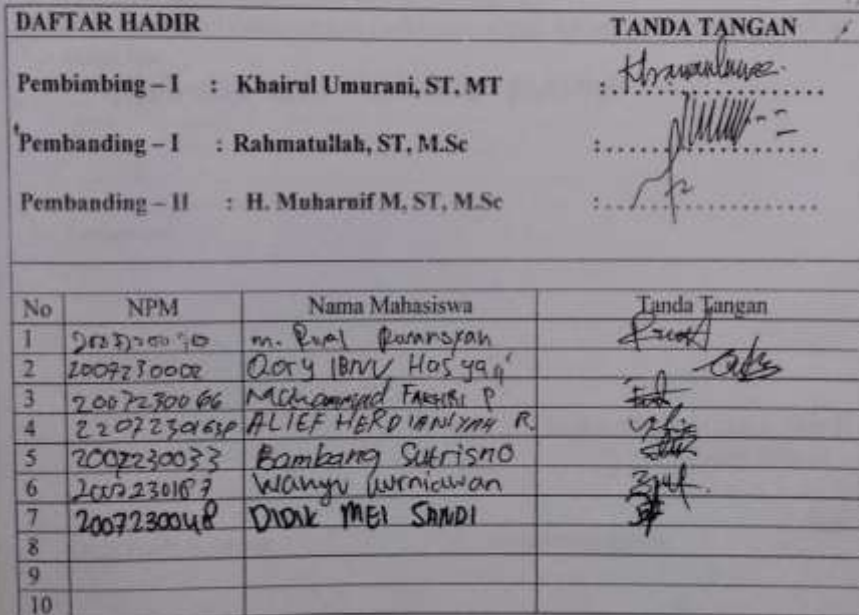 DAFTAR HADIR TANDA TANGAN
Pembimbing – I : Khairul Umurani, ST, MT :
Pembanding – I : Rahmatullah, ST, M.Sc :
Pembanding – II : H. Muharnif M, ST, M.Sc :
No NPM Nama Mahasiswa Tanda Tangan
1 M.
2 2007230002 Qory IBNU
3 2007230066 Mohammad FAKHRI P
4 ALIEF HERDIANSYAH R.
5 2007230033 Bambang Sutrisno
6 Wahyu Kurniawan
7 2007230048 DIDIK MEI SANDI
8
9
10